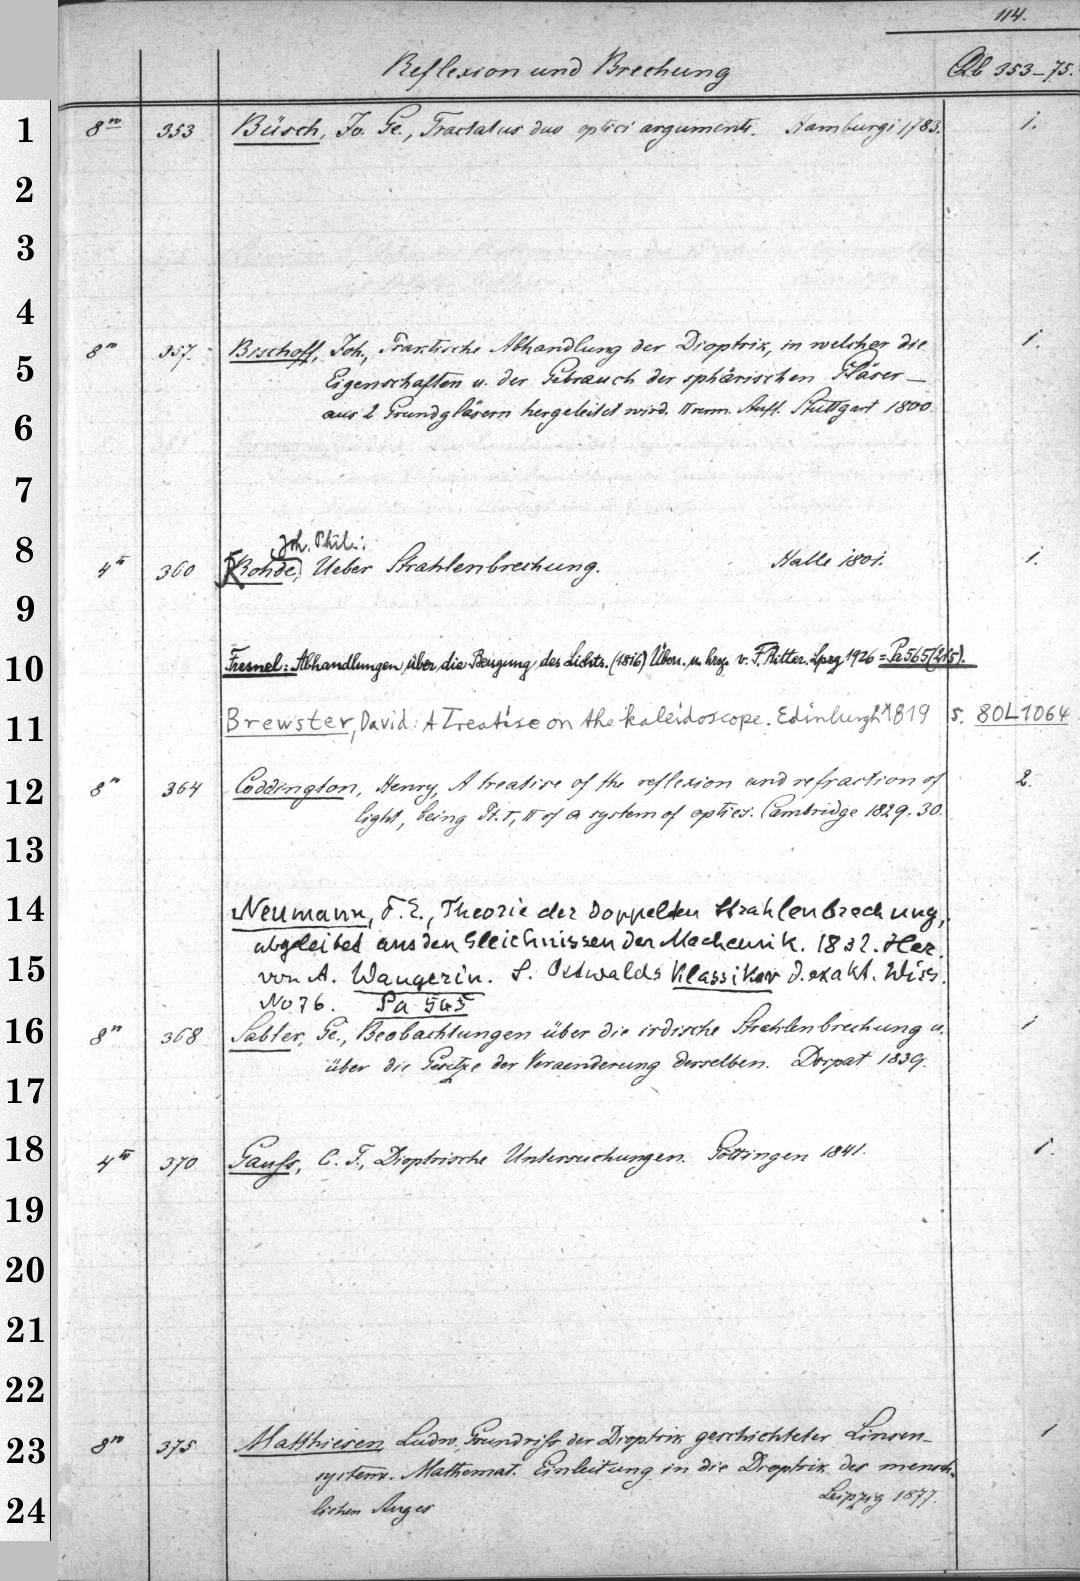 114.
Reflexion und Brechung Qb 353-75.
1 8vo 353 Büsch, Jo. Ge., Tractatus duo optici argumenti. Hamburgi 1783. 1.
2
3
4
5 8o 357. Bischoff, Joh., Praktische Abhandlung der Dioptrik, in welcher die 1.
Eigenschaften u. der Gebrauch der sphärischen Gläser –
6 aus 2 Grundgläsern hergeleitet wird. II verm. Aufl. Stuttgart 1800.
7
8 Joh. Phil.:
4to 360 Rohde, Ueber Strahlenbrechung. Halle 1801. 1.
9
10 Fresnel: Abhandlungen über die Beugung des Lichts. (1816) Übers. u. hrsg. v. F. Ritter. Lpzg 1926 = Pa 565 (215).
11 Brewster, David: A Treatise on the kaleidoscope. Edinburgh 1819 s. 80L1064
12 8o 364 Coddington, Henry, A treatise of the reflexion and refraction of 2.
light, being Pt. I, II of a system of optics. Cambridge 1829. 30.
13
14 Neumann, F. E., Theorie der Doppelten Strahlenbrechung,
abgeleitet aus den Gleichnissen der Mechanik. 1832. Her.
15 von A. Wangerin. S. Ostwalds Klassiker d. exakt. Wiss.
No 76. Pa 565
16 8o 368 Sabler, Ge., Beobachtungen über die irdische Strahlenbrechung u. 1
über die Gesetze der Veraenderung derselben. Dorpat 1839.
17
18 4to 370 Gauss, C. F., Dioptrische Untersuchungen. Göttingen 1841. 1.
19
20
21
22
23 8vo 375 Matthiesen, Ludw., Grundriss der Dioptrik geschichteter Linsen- 1
systeme. Mathemat. Einleitung in die Dioptrik des mensch-
24 lichen Auges Leipzig 1877.